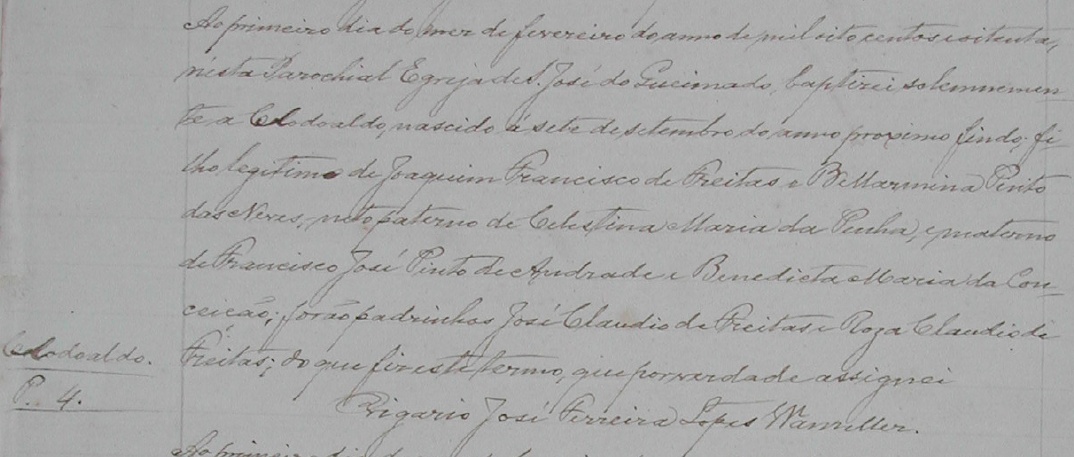 Ao primeiro dia do mez de fevereiro do anno de mil oito centos e oitenta,
nesta Parochial Egreja de S. José do Queimado, baptizei solemnemen-
te a Clodoaldo, nascido á sete de setembro do anno proximo findo; fi-
lho legitimo de Joaquim Francisco de Freitas e Bellarmina Pinto
das Neves, neto paterno de Celestina Maria da Penha, e materno
de Francisco José Pinto de Andrade e Benedicta Maria da Con-
ceição; forão padrinhos José Claudio de Freitas e Roza Claudio de
Freitas; do que fiz este termo, que por verdade assignei
Vigario José Ferreira Lopes Wanzeller.
Clodoaldo.
P. 4.
Ao primeiro dia do